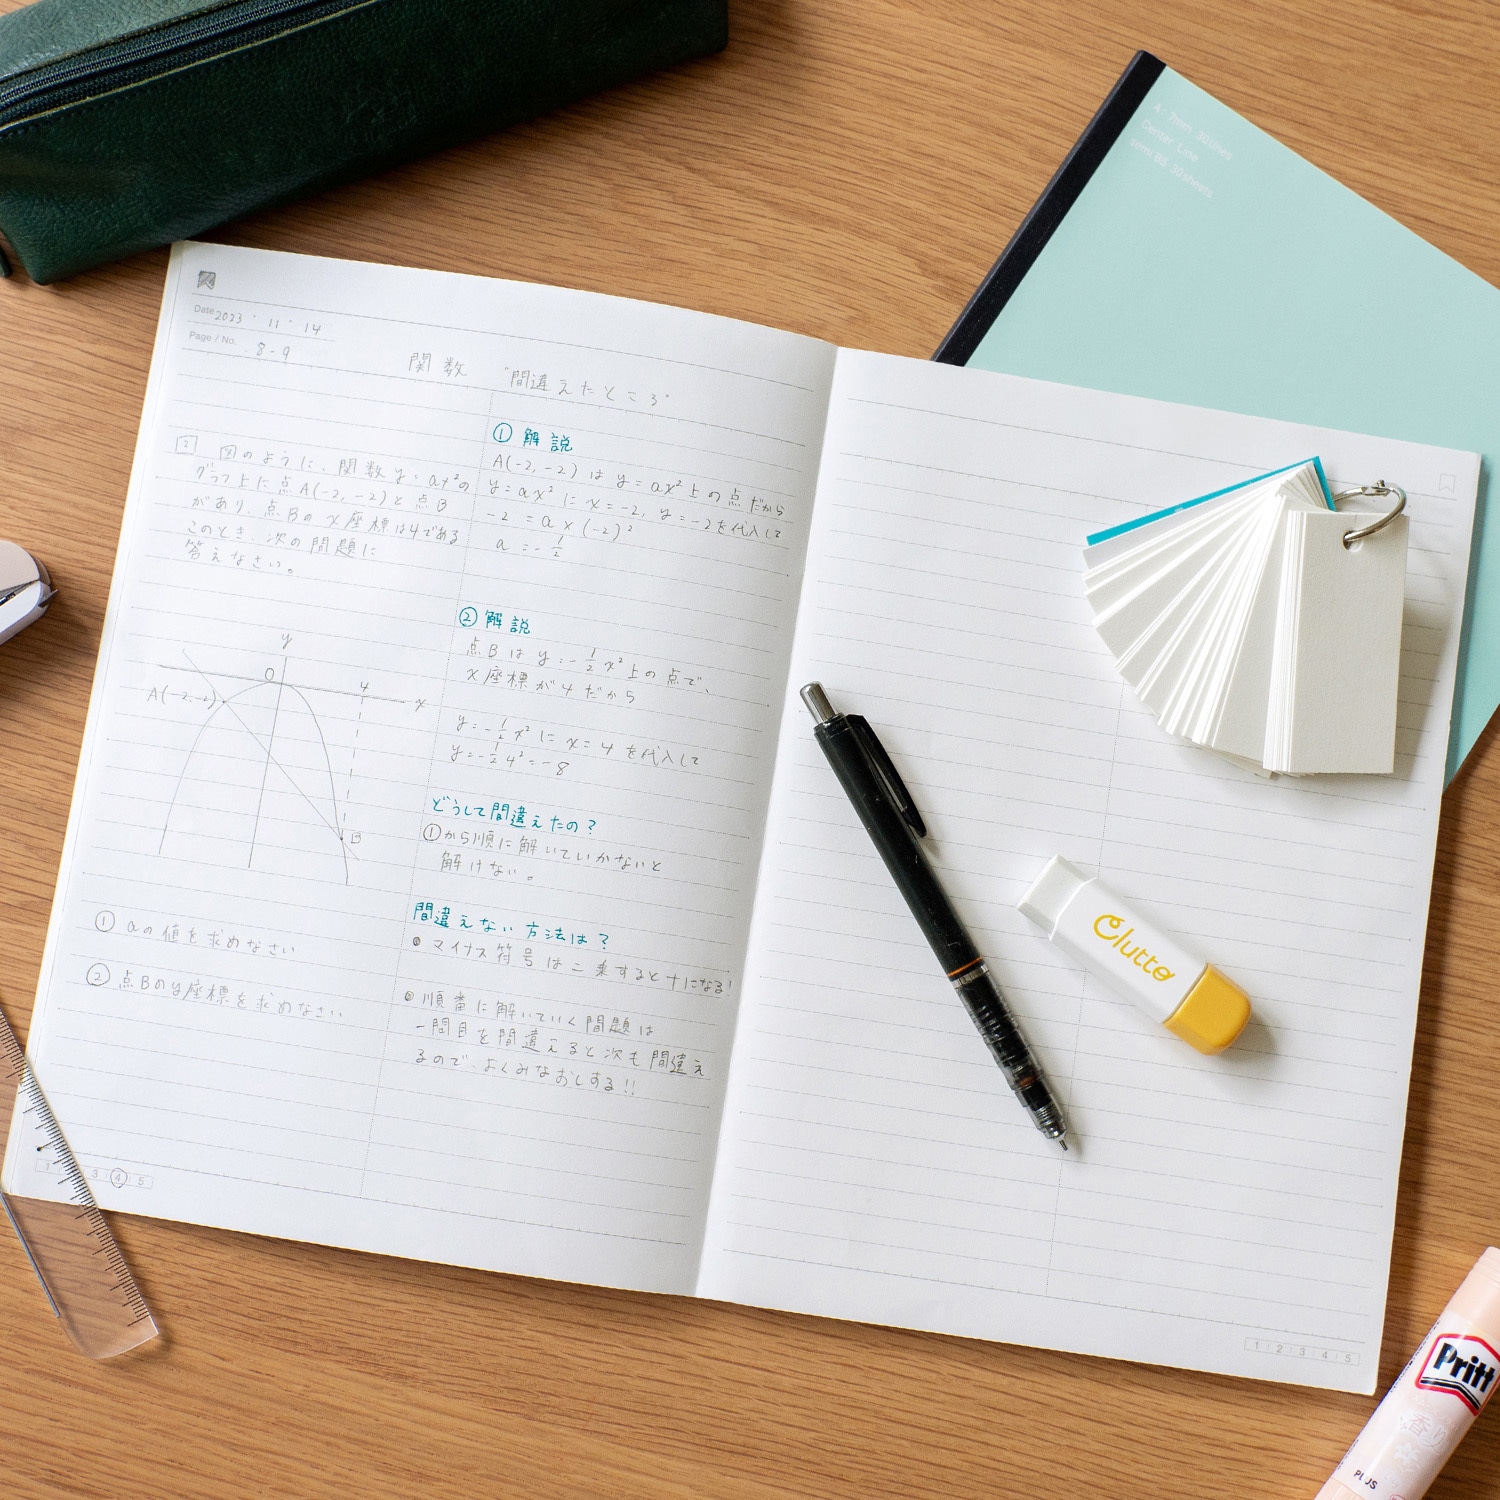 Date 2023・11・14
Page / No. 8-9
関数 "間違えたところ"
2 図のように、関数y=ax²の
グラフ上に点A(-2,-2)と点B
があり、点Bのx座標は4である
このとき、次の問題に
答えなさい。
y
O
4
x
A(-2,-2)
B
① aの値を求めなさい
② 点Bのy座標を求めなさい
① 解説
A(-2,-2)はy=ax²上の点だから
y=ax²にx=-2, y=-2を代入して
-2=a×(-2)²
a=-1/2
② 解説
点Bはy=-1/2x²上の点で、
x座標が4だから
y=-1/2x²にx=4を代入して
y=-1/2 4²=-8
どうして間違えたの?
①から順に解いていかないと
解けない。
間違えない方法は?
マイナス符号は二乗すると+になる!
順番に解いていく問題は
一問目を間違えると次も間違え
るので、よくみなおしする!!
1 3 4 5
1 2 3 4 5
A:7mm 30lines
Center Line
semi B5 30sheets
Clutto
Pritt
香り
PLUS